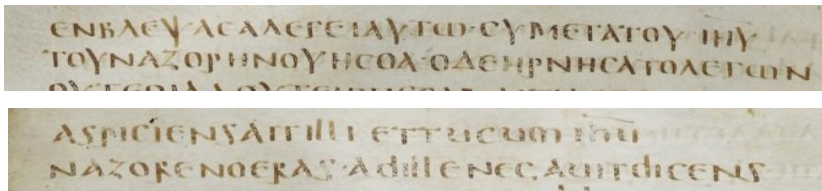 ΕΝΒΛΕΨΑϹΑΛΕΓΕΙΑΥΤΩ·ϹΥΜΕΤΑΤΟΥ ΙΗΥ
ΤΟΥΝΑΖΟΡΗΝΟΥΗϹΘΑ·ΟΔΕΗΡΝΗϹΑΤΟΛΕΓΩΝ
aspiciensait illi et tu cum ihū
nazorenoeras·ad ille negauit dicens